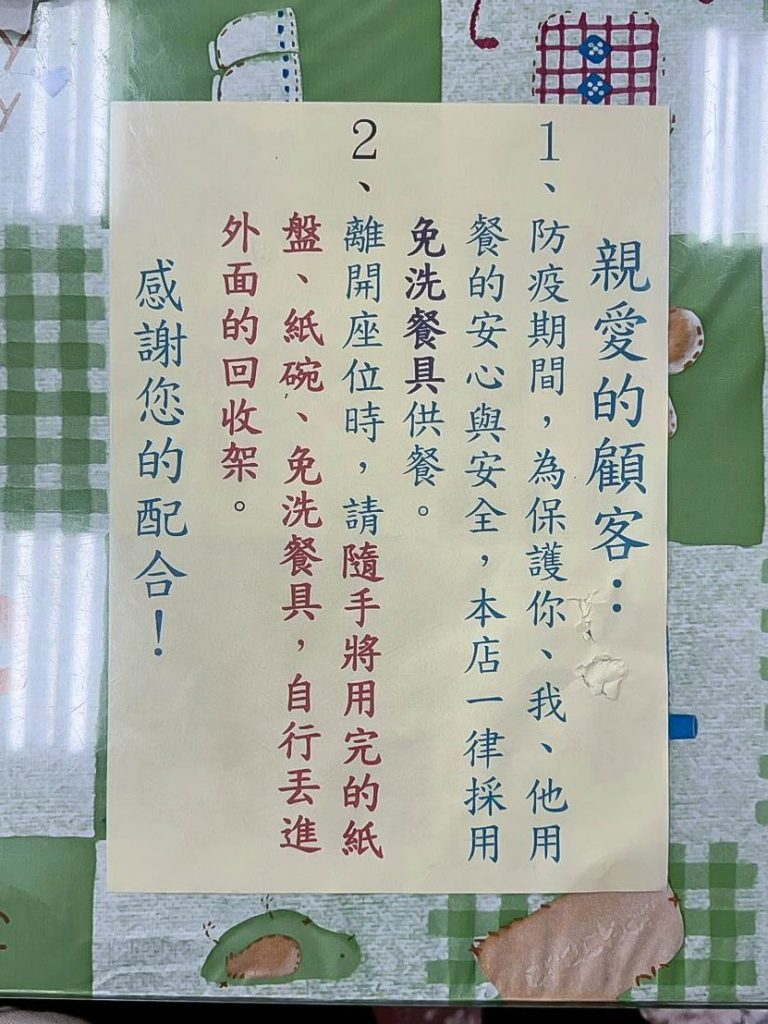 親愛的顧客：
1、防疫期間，為保護你、我、他用
餐的安心與安全，本店一律採用
免洗餐具供餐。
2、離開座位時，請隨手將用完的紙
盤、紙碗、免洗餐具，自行丟進
外面的回收架。
感謝您的配合！